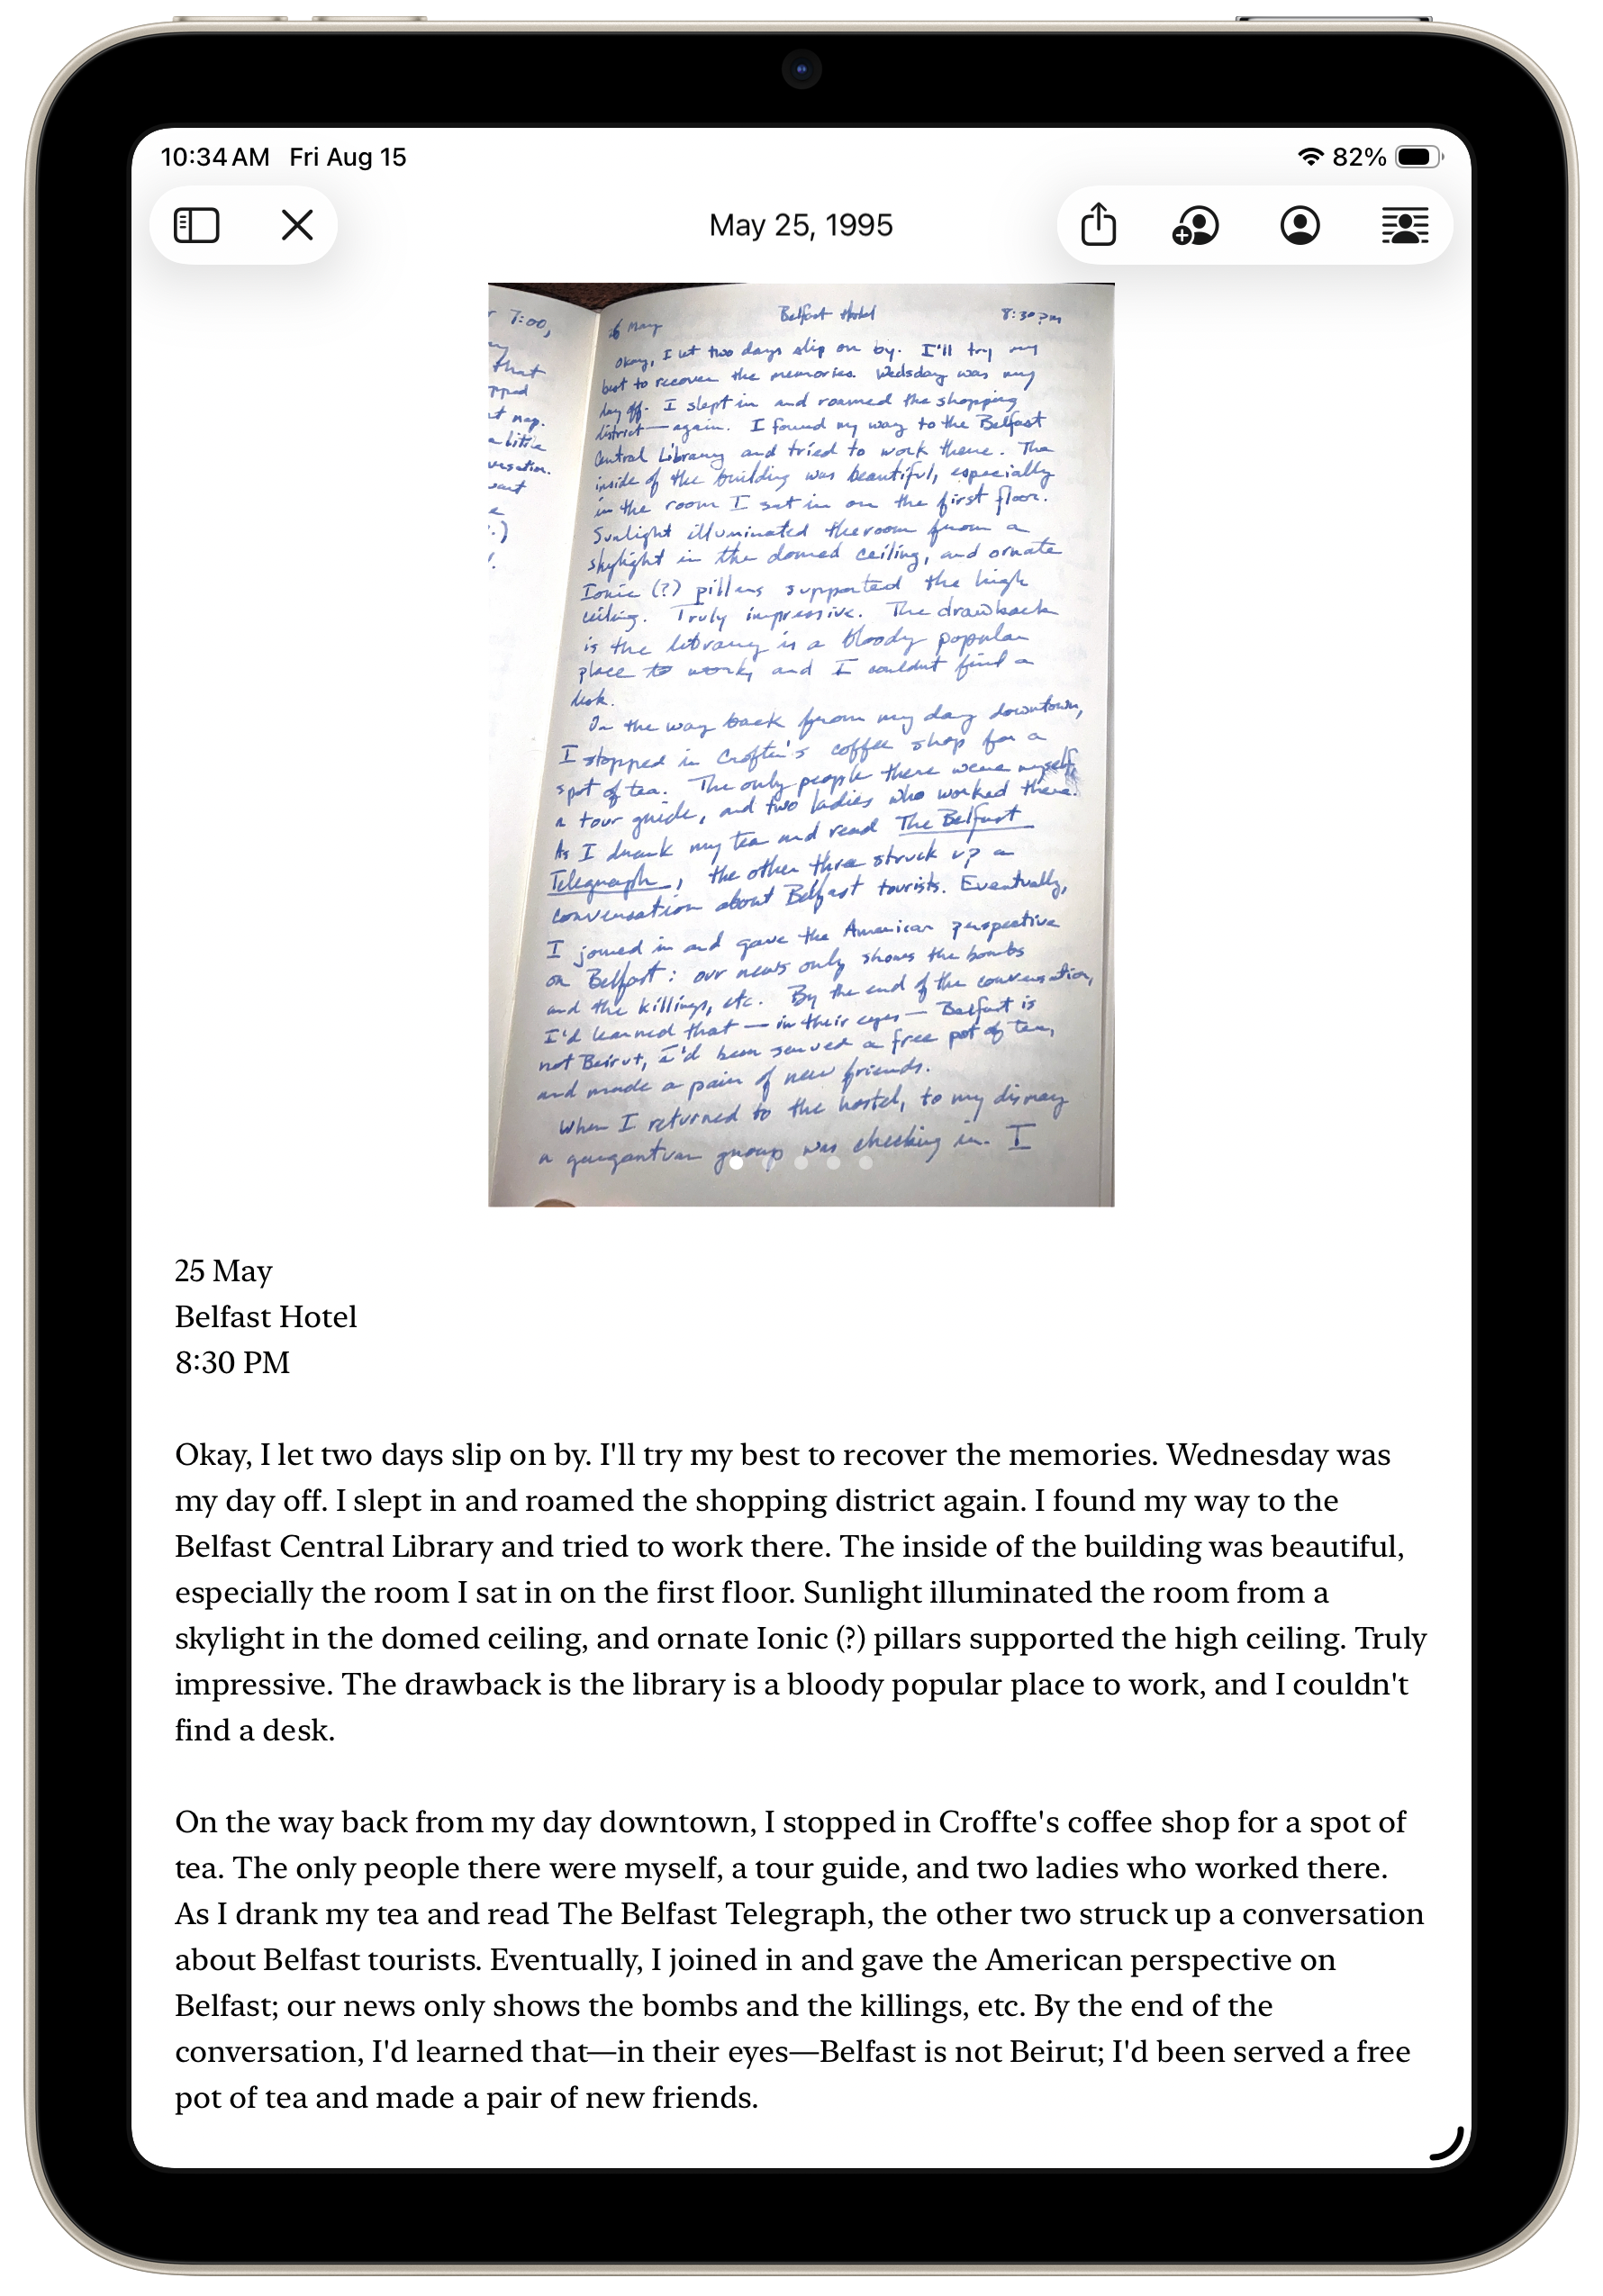 10:34 AM Fri Aug 15
82%
May 25, 1995
7:00,
that
pped
nap.
a little
May
Belfast Hotel
8:30pm
Okay, I let two days slip on by. I'll try my
best to recover the memories. Wedsday was my
day off. I slept in and roamed the shopping
district — again. I found my way to the Belfast
Central Library and tried to work there. The
inside of the building was beautiful, especially
in the room I sat in on the first floor.
Sunlight illuminated the room from a
skylight in the domed ceiling, and ornate
Ionic (?) pillars supported the high
ceiling. Truly impressive. The drawback
is the library is a bloody popular
place to work, and I couldn't find a
desk.
On the way back from my day downtown,
I stopped in coffee shop for a
spot of tea. The only people there were myself,
a tour guide, and two ladies who worked there.
As I drank my tea and read The Belfast
Telegraph, the other three struck up a
conversation about Belfast tourists. Eventually,
I joined in and gave the American perspective
on Belfast: our news only shows the bombs
and the killings, etc. By the end of the conversation,
I'd learned that — in their eyes — Belfast is
not Beirut, I'd been served a free pot of tea,
and made a pair of new friends.
When I returned to the hostel, to my dismay
a gargantuan group was checking in. I
25 May
Belfast Hotel
8:30 PM
Okay, I let two days slip on by. I'll try my best to recover the memories. Wednesday was
my day off. I slept in and roamed the shopping district again. I found my way to the
Belfast Central Library and tried to work there. The inside of the building was beautiful,
especially the room I sat in on the first floor. Sunlight illuminated the room from a
skylight in the domed ceiling, and ornate Ionic (?) pillars supported the high ceiling. Truly
impressive. The drawback is the library is a bloody popular place to work, and I couldn't
find a desk.
On the way back from my day downtown, I stopped in Croffte's coffee shop for a spot of
tea. The only people there were myself, a tour guide, and two ladies who worked there.
As I drank my tea and read The Belfast Telegraph, the other two struck up a conversation
about Belfast tourists. Eventually, I joined in and gave the American perspective on
Belfast; our news only shows the bombs and the killings, etc. By the end of the
conversation, I'd learned that—in their eyes—Belfast is not Beirut; I'd been served a free
pot of tea and made a pair of new friends.